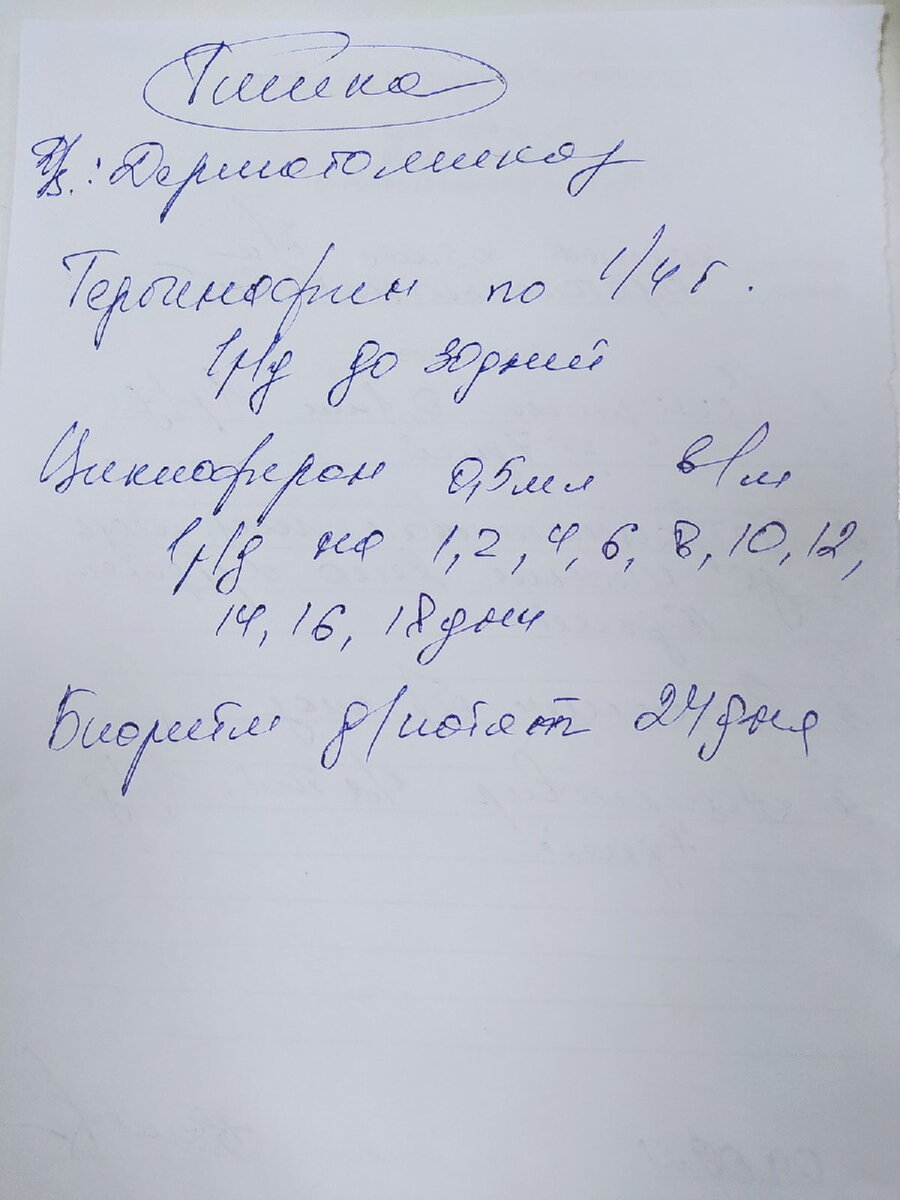 Тишка
D/s.: Дерматомикоз
Тербинафин по 1/4 т.
1 р/д до 30 дней
Циклоферон 0,5 мл в/м
1 р/д на 1, 2, 4, 6, 8, 10, 12,
14, 16, 18 дни
Биоритм д/котят 24 дня